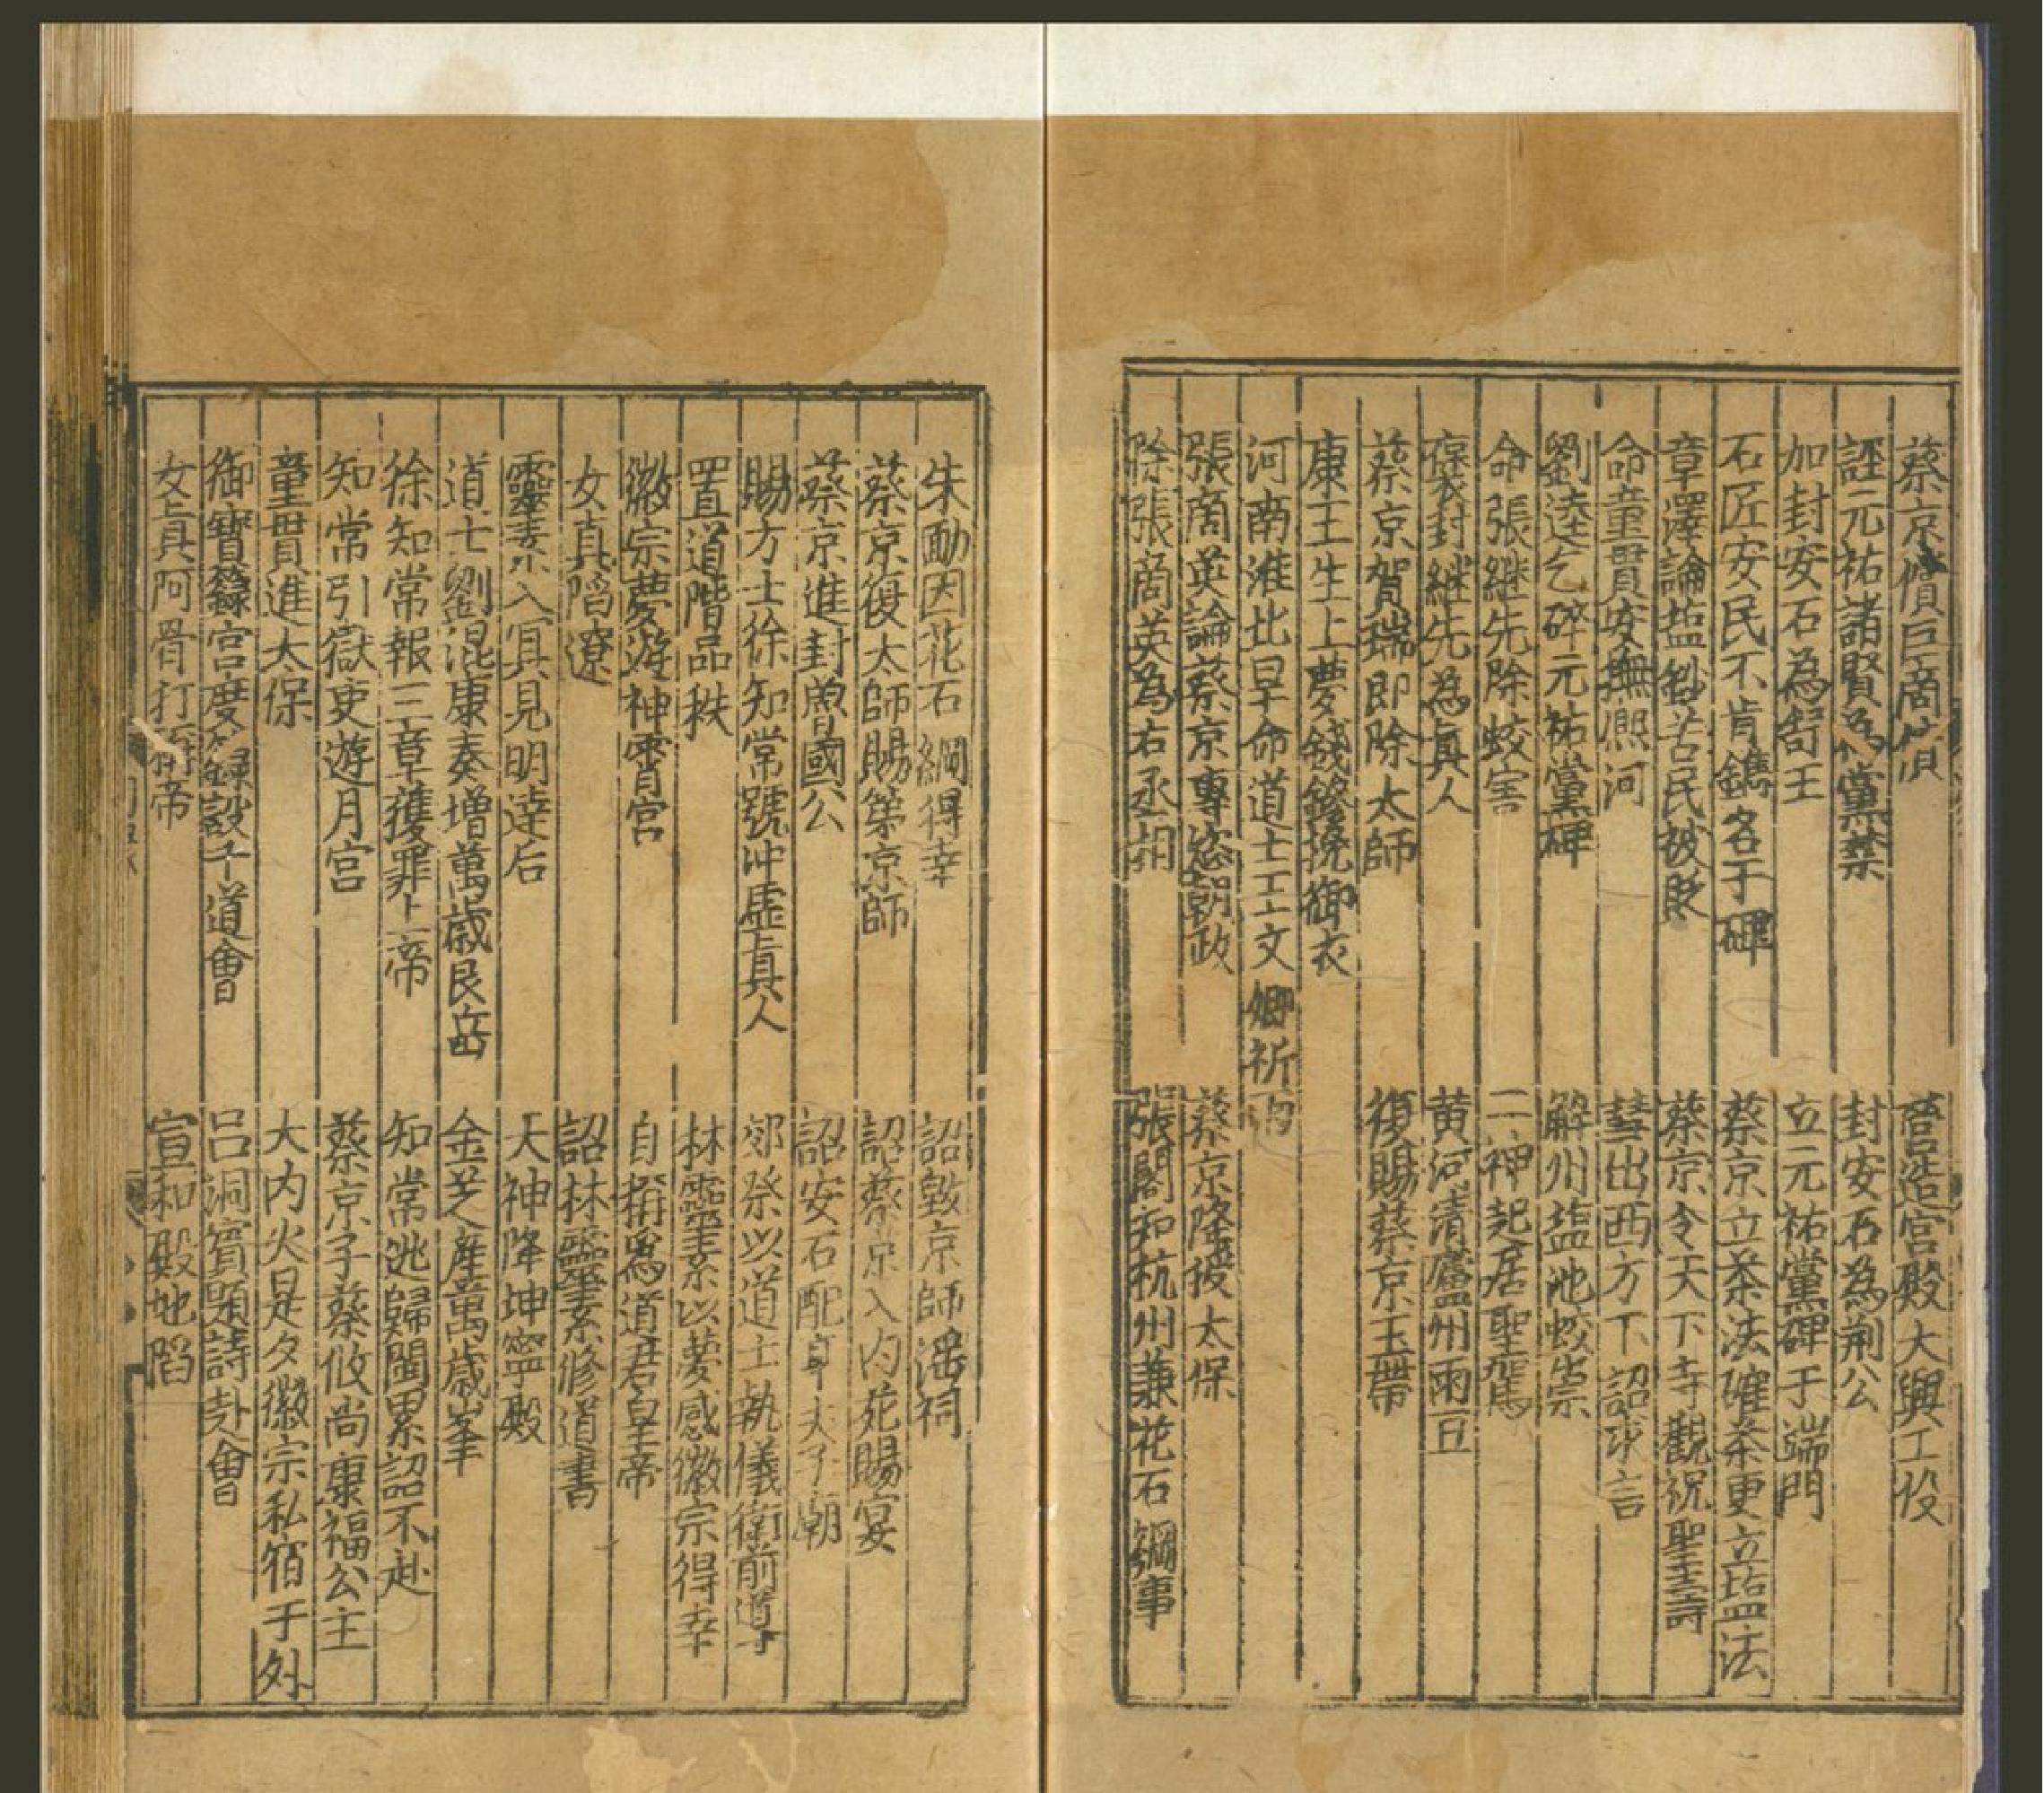 蔡京償巨商債
誣元祐諸賢為黨禁
加封安石為舒王
石匠安民不肯鐫名于碑
章縡論塩鈔苦民被貶
命童貫安撫熙河
劉逵乞碎元祐黨碑
命張継先除蛟害
褒封継先為真人
蔡京賀瑞即除太師
康王生上夢錢鏐挽御衣
河南淮北旱命道士王文卿祈雨
張商英論蔡京專恣朝政
除張商英為右丞相
營造宮殿大興工役
封安石為荆公
立元祐黨碑于端門
蔡京立茶法確茶更立塩法
蔡京令天下寺觀祝聖壽
彗出西方下詔求言
解州塩池蛟祟
二神起居聖駕
黄河清廬州雨豆
復賜蔡京玉帶
蔡京降授太保
張閣知杭州兼花石綱事
朱勔因花石綱得幸
蔡京復太師賜第京師
蔡京進封魯國公
賜方士徐知常號沖虚真人
置道階品秩
徽宗夢遊神霄宮
女真陷遼
靈素入冥見明達后
道士劉混康奏増萬歳艮岳
徐知常報三章獲罪上帝
知常引獄吏遊月宮
童貫進太保
御寶籙宮度籙設千道會
女真阿骨打稱帝
詔毀京師滛祠
詔蔡京入内苑賜宴
詔安石配享夫子廟
郊祭以道士執儀衛前導
林靈素以夢感徽宗得幸
自稱爲道君皇帝
詔林靈素修道書
天神降坤寧殿
金芝産萬歳峯
知常逃歸閩累詔不赴
蔡京子蔡攸尚康福公主
大内火是夕徽宗私宿于外
吕洞賓題詩赴會
宣和殿地陷